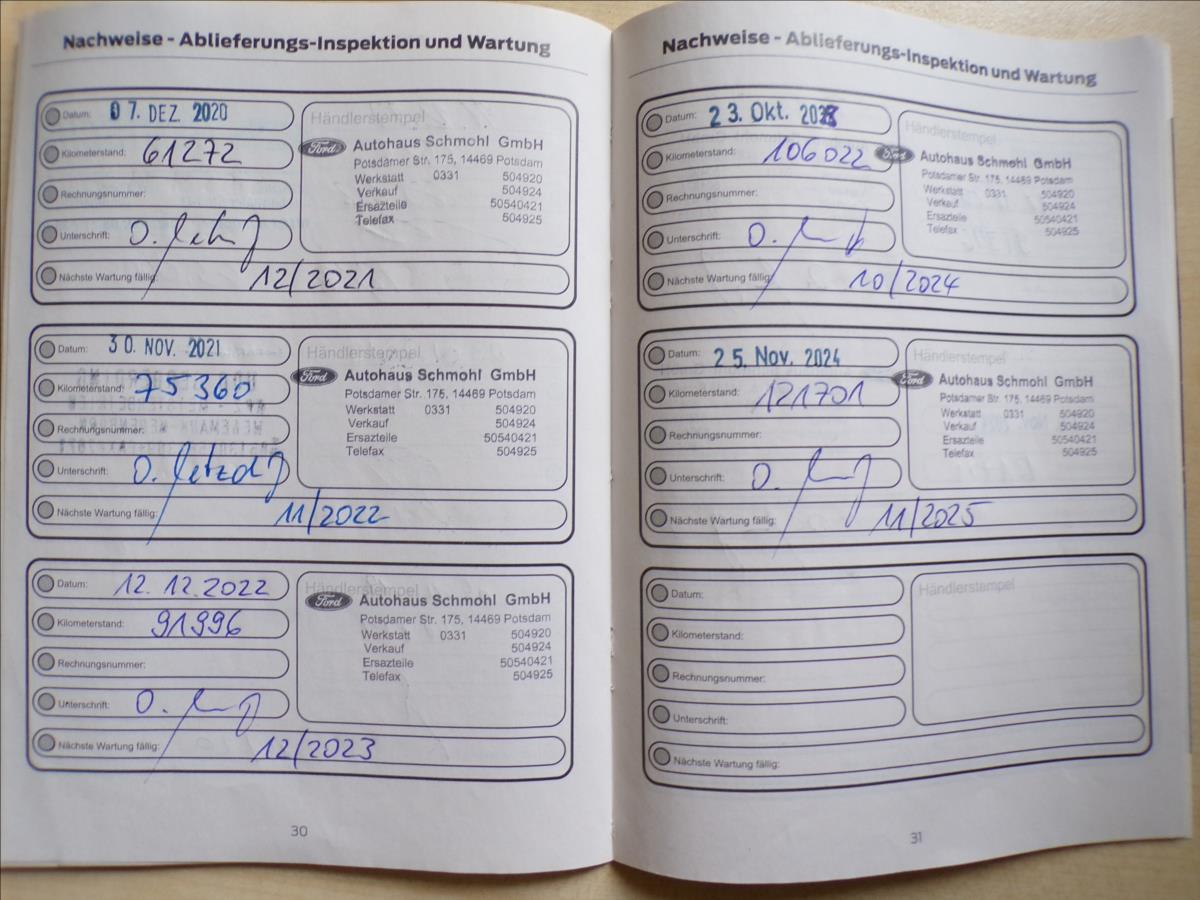 Nachweise - Ablieferungs-Inspektion und Wartung
Datum: 07. DEZ. 2020
Kilometerstand: 61272
Rechnungsnummer:
Unterschrift:
Nächste Wartung fällig: 12/2021
Händlerstempel
Ford Autohaus Schmohl GmbH
Potsdamer Str. 175, 14469 Potsdam
Werkstatt 0331 504920
Verkauf 504924
Ersazteile 50540421
Telefax 504925
Datum: 30. NOV. 2021
Kilometerstand: 75360
Rechnungsnummer:
Unterschrift:
Nächste Wartung fällig: 11/2022
Händlerstempel
Ford Autohaus Schmohl GmbH
Potsdamer Str. 175, 14469 Potsdam
Werkstatt 0331 504920
Verkauf 504924
Ersazteile 50540421
Telefax 504925
Datum: 12.12.2022
Kilometerstand: 91996
Rechnungsnummer:
Unterschrift:
Nächste Wartung fällig: 12/2023
Händlerstempel
Ford Autohaus Schmohl GmbH
Potsdamer Str. 175, 14469 Potsdam
Werkstatt 0331 504920
Verkauf 504924
Ersazteile 50540421
Telefax 504925
30
Nachweise - Ablieferungs-Inspektion und Wartung
Datum: 23. Okt. 2023
Kilometerstand: 106022
Rechnungsnummer:
Unterschrift:
Nächste Wartung fällig: 10/2024
Händlerstempel
Ford Autohaus Schmohl GmbH
Potsdamer Str. 175, 14469 Potsdam
Werkstatt 0331 504920
Verkauf 504924
Ersazteile 50540421
Telefax 504925
Datum: 25. Nov. 2024
Kilometerstand: 121701
Rechnungsnummer:
Unterschrift:
Nächste Wartung fällig: 11/2025
Händlerstempel
Ford Autohaus Schmohl GmbH
Potsdamer Str. 175, 14469 Potsdam
Werkstatt 0331 504920
Verkauf 504924
Ersazteile 50540421
Telefax 504925
Datum:
Kilometerstand:
Rechnungsnummer:
Unterschrift:
Nächste Wartung fällig:
Händlerstempel
31